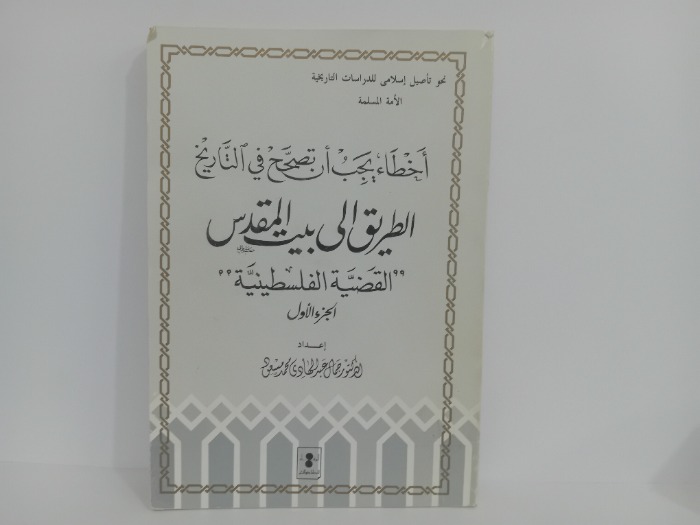 نحو تأصيل إسلامى للدراسات التاريخية
الأمة المسلمة
أخطاء يجب أن تصحح في التاريخ
الطريق إلى بيت المقدس
"القضية الفلسطينية"
الجزء الأول
إعداد
الدكتور جمال عبد الهادي محمد مسعود